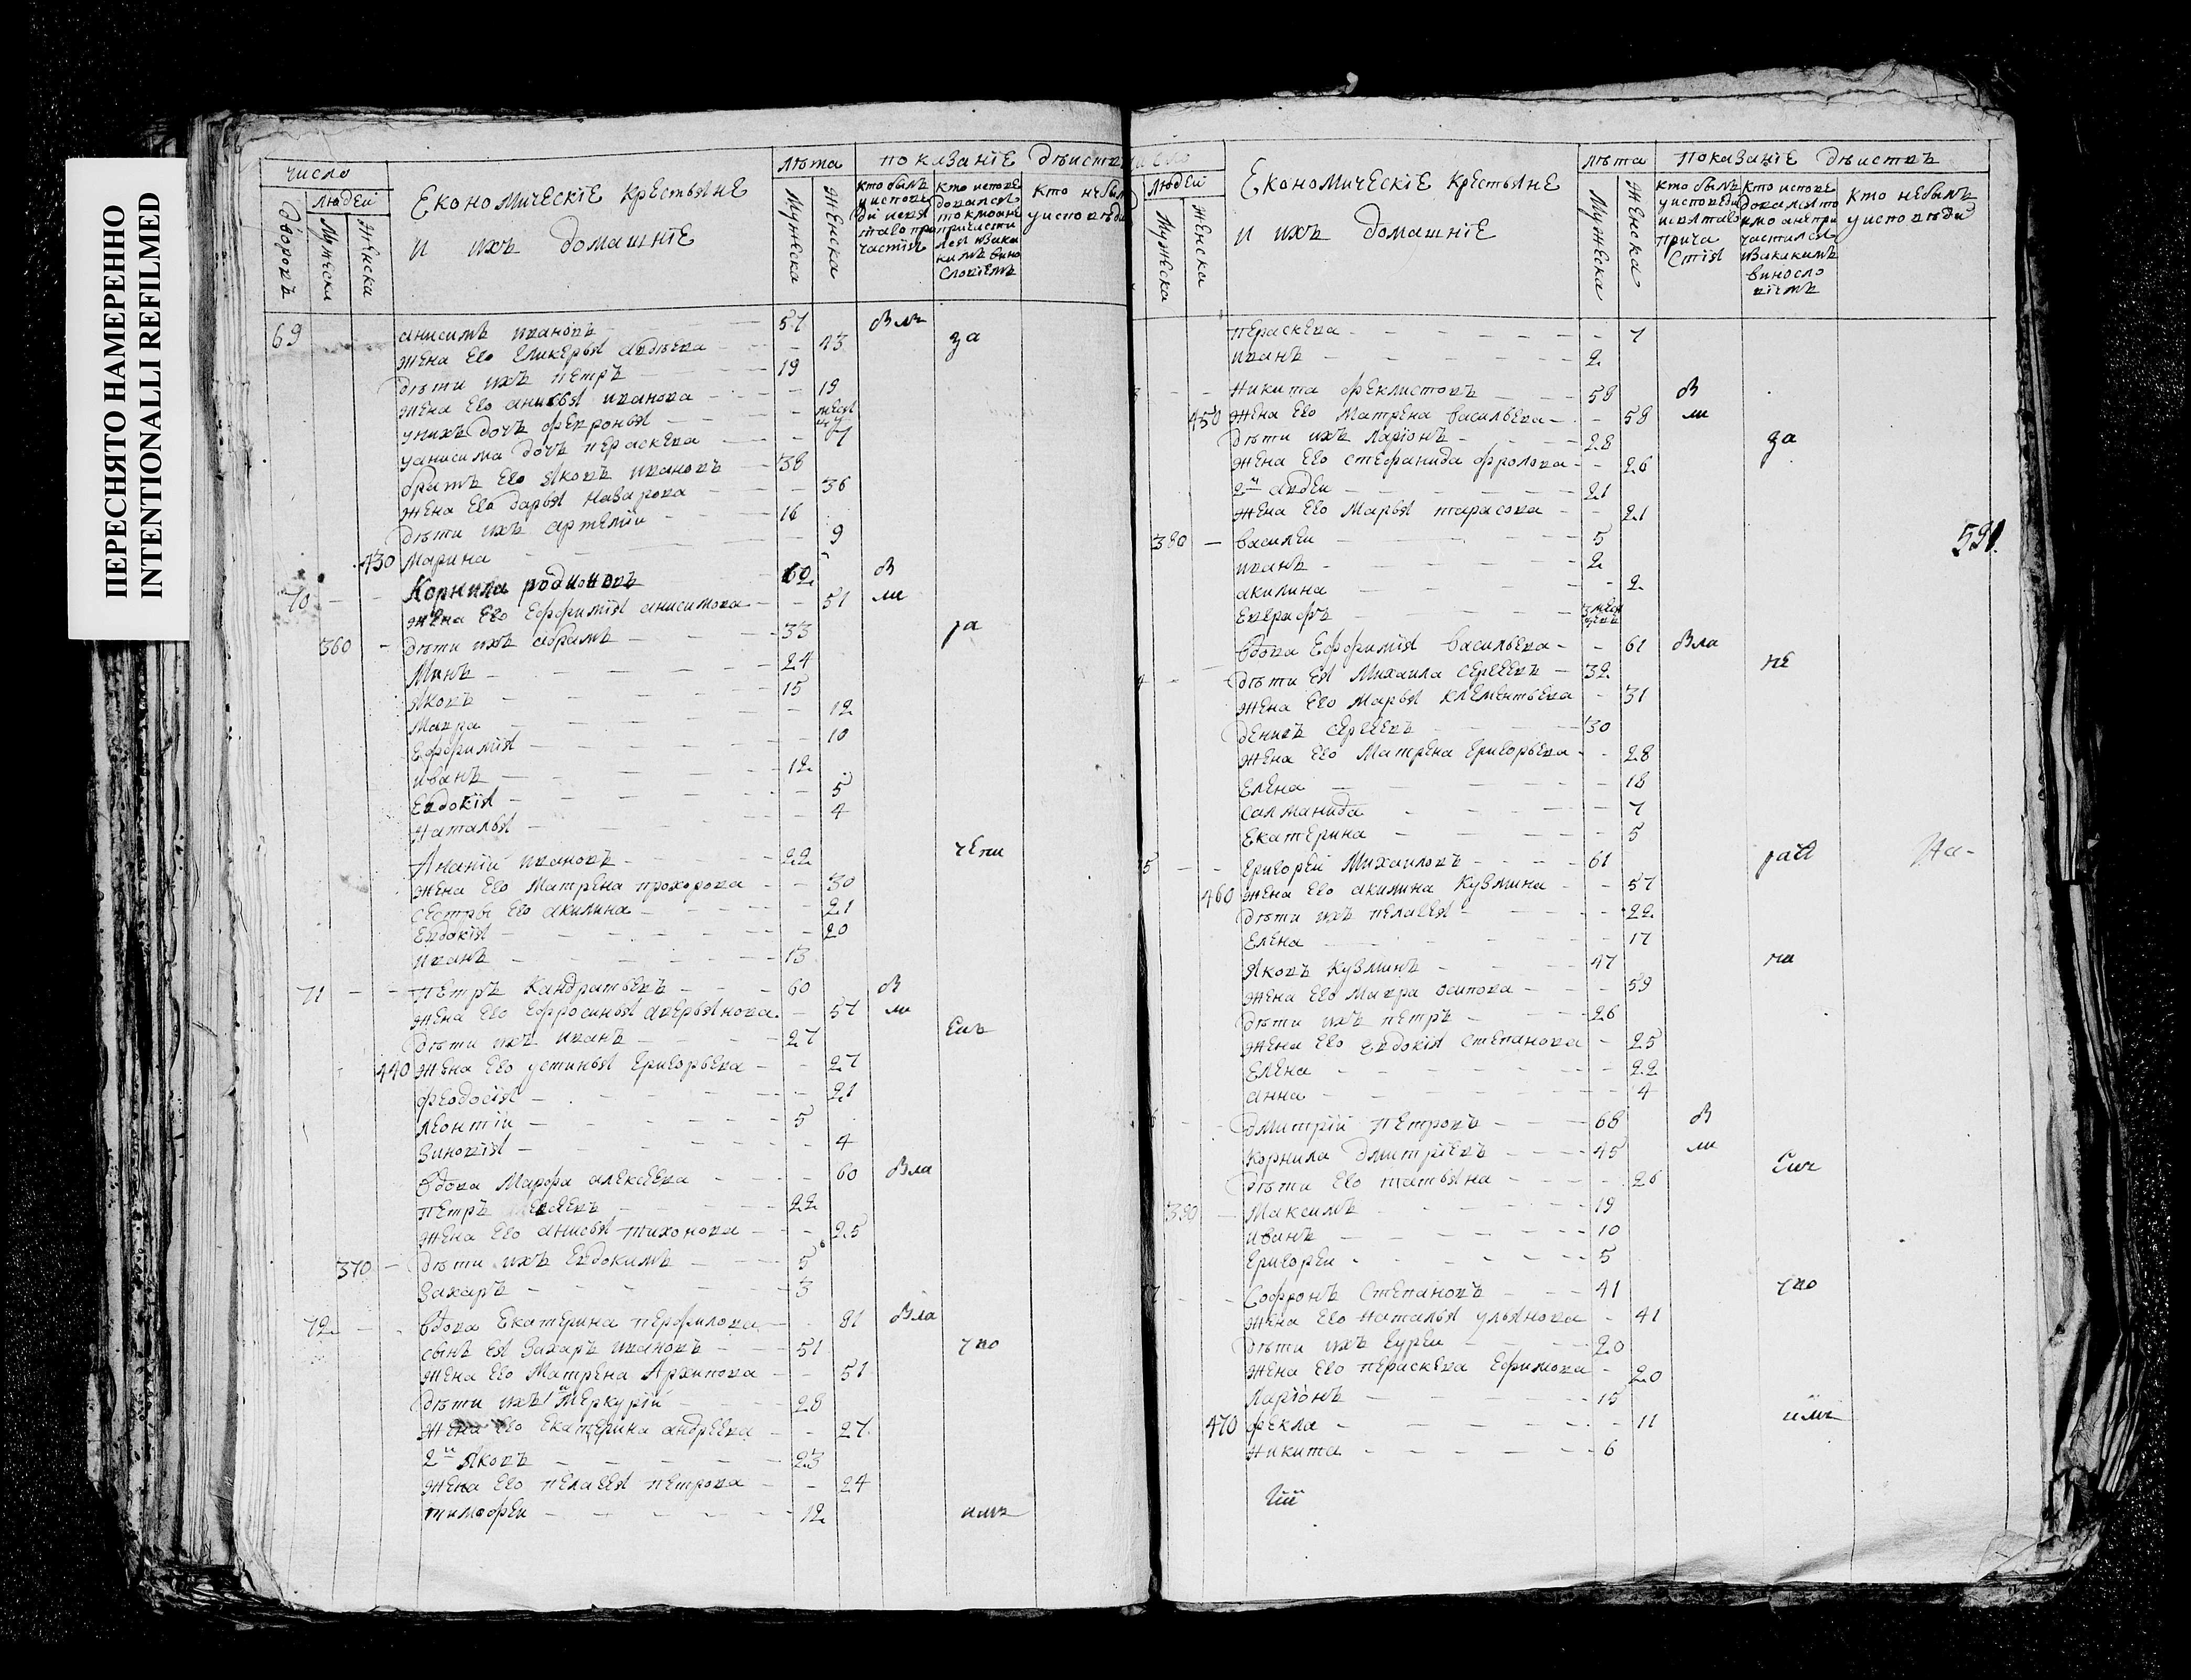 ПЕРЕСНЯТО НАМЕРЕННО
INTENTIONALLI REFILMED
число
людей
дворовъ
Мужеска
женска
Економическіе крестьяне
и ихъ домашніе
лѣта
Мужеска
женска
показаніе дѣиств
кто былъ
у испове
кто испове
довался
кто небыл
у исповѣди
69 анисимъ ивановъ 57 Вли
жена Ево Гликерья авдѣева 43 за
дѣти ихъ петръ 19
жена Ево анисья иванова 19
унихъ дочь февронья
уанисима дочь пераскева 7
братъ Ево Яковъ ивановъ 38
жена Ево дарья назарова 36
дѣти ихъ артемій 16
430 Марина 9
70 Корнила родионовъ 62 В
жена Ево Еффимія анисимова 51 ли
360 дѣти ихъ абрамъ 33 ра
Минъ 24
Яковъ 15
Мавра 12
Еффимія 10
иванъ 12
Евдокія 5
наталья 4
Ананій ивановъ 22 чени
жена Ево Матрена прохорова 30
сестры Ево акилина 21
Евдокія 20
иванъ 13
71 петръ Кандратьевъ 60 В
жена Ево Ефросинья аверьянова 57 ли
дѣти ихъ иванъ 27 Емъ
440 жена Ево устинья григорьева 27
феодосія 21
леонтій 5
Зиновія 4
вдова Марфа алексеева 60 Вла
петръ 22
жена Ево анисья тихонова 25
370 дѣти ихъ Евдокимъ 5
Захаръ 3
72 вдова Екатерина перфилова 81 Вла
сынъ ея Захаръ ивановъ 51 гво
жена Ево Матрена Архипова 51
дѣти ихъ 1й Меркурій 28
жена Ево Екатерина андреева 27
2й Яковъ 23
жена Ево пелагея петрова 24
тимофеи 12 имъ
число
людей
Мужеска
женска
Економическіе крестьяне
и ихъ домашніе
лѣта
Мужеска
женска
показаніе дѣиствъ
кто былъ
у исповеди
прича
стія
кто испове
довался то
кмо непри
частился
изакакимъ
виносло
віемъ
кто небылъ
у исповѣди
пераскева 7
иванъ 2
никита феклистовъ 58 В
450 жена Ево Матрена васильева 58 ли
дѣти ихъ ларіонъ 28 за
жена Ево стефанида фролова 26
2й авдеи 21
жена Ево Марья тарасова 21
380 василеи 5
591
иванъ 2
акилина 2
Евграфъ
вдова Еффимія васильева 61 Вла
дѣти ея Михаила сергеевъ 32 не
жена Ево Марья клементьева 31
денисъ сергеевъ 30
жена Ево Матрена григорьева 28
Елена 18
салманида 7
Екатерина 5
5 григореи Михаиловъ 61 На-
460 жена Ево акилина кузмина 57
дѣти ихъ пелагея 22
Елена 17
Яковъ кузминъ 47 ни
жена Ево Мавра осипова 59
дѣти ихъ петръ 26
жена Ево Евдокія степанова 25
Елена 22
анна 4
дмитрій петровъ 68 В
корнила дмитріевъ 45 ли
дѣти Ево татьяна 26 Емъ
390 Максимъ 19
иванъ 10
григореи 5
7 Софронъ степановъ 41 гво
жена Ево наталья ульянова 41
дѣти ихъ гуреи 20
жена Ево пераскева Ефимова 20
ларіонъ 15
470 фекла 11 імъ
никита 6